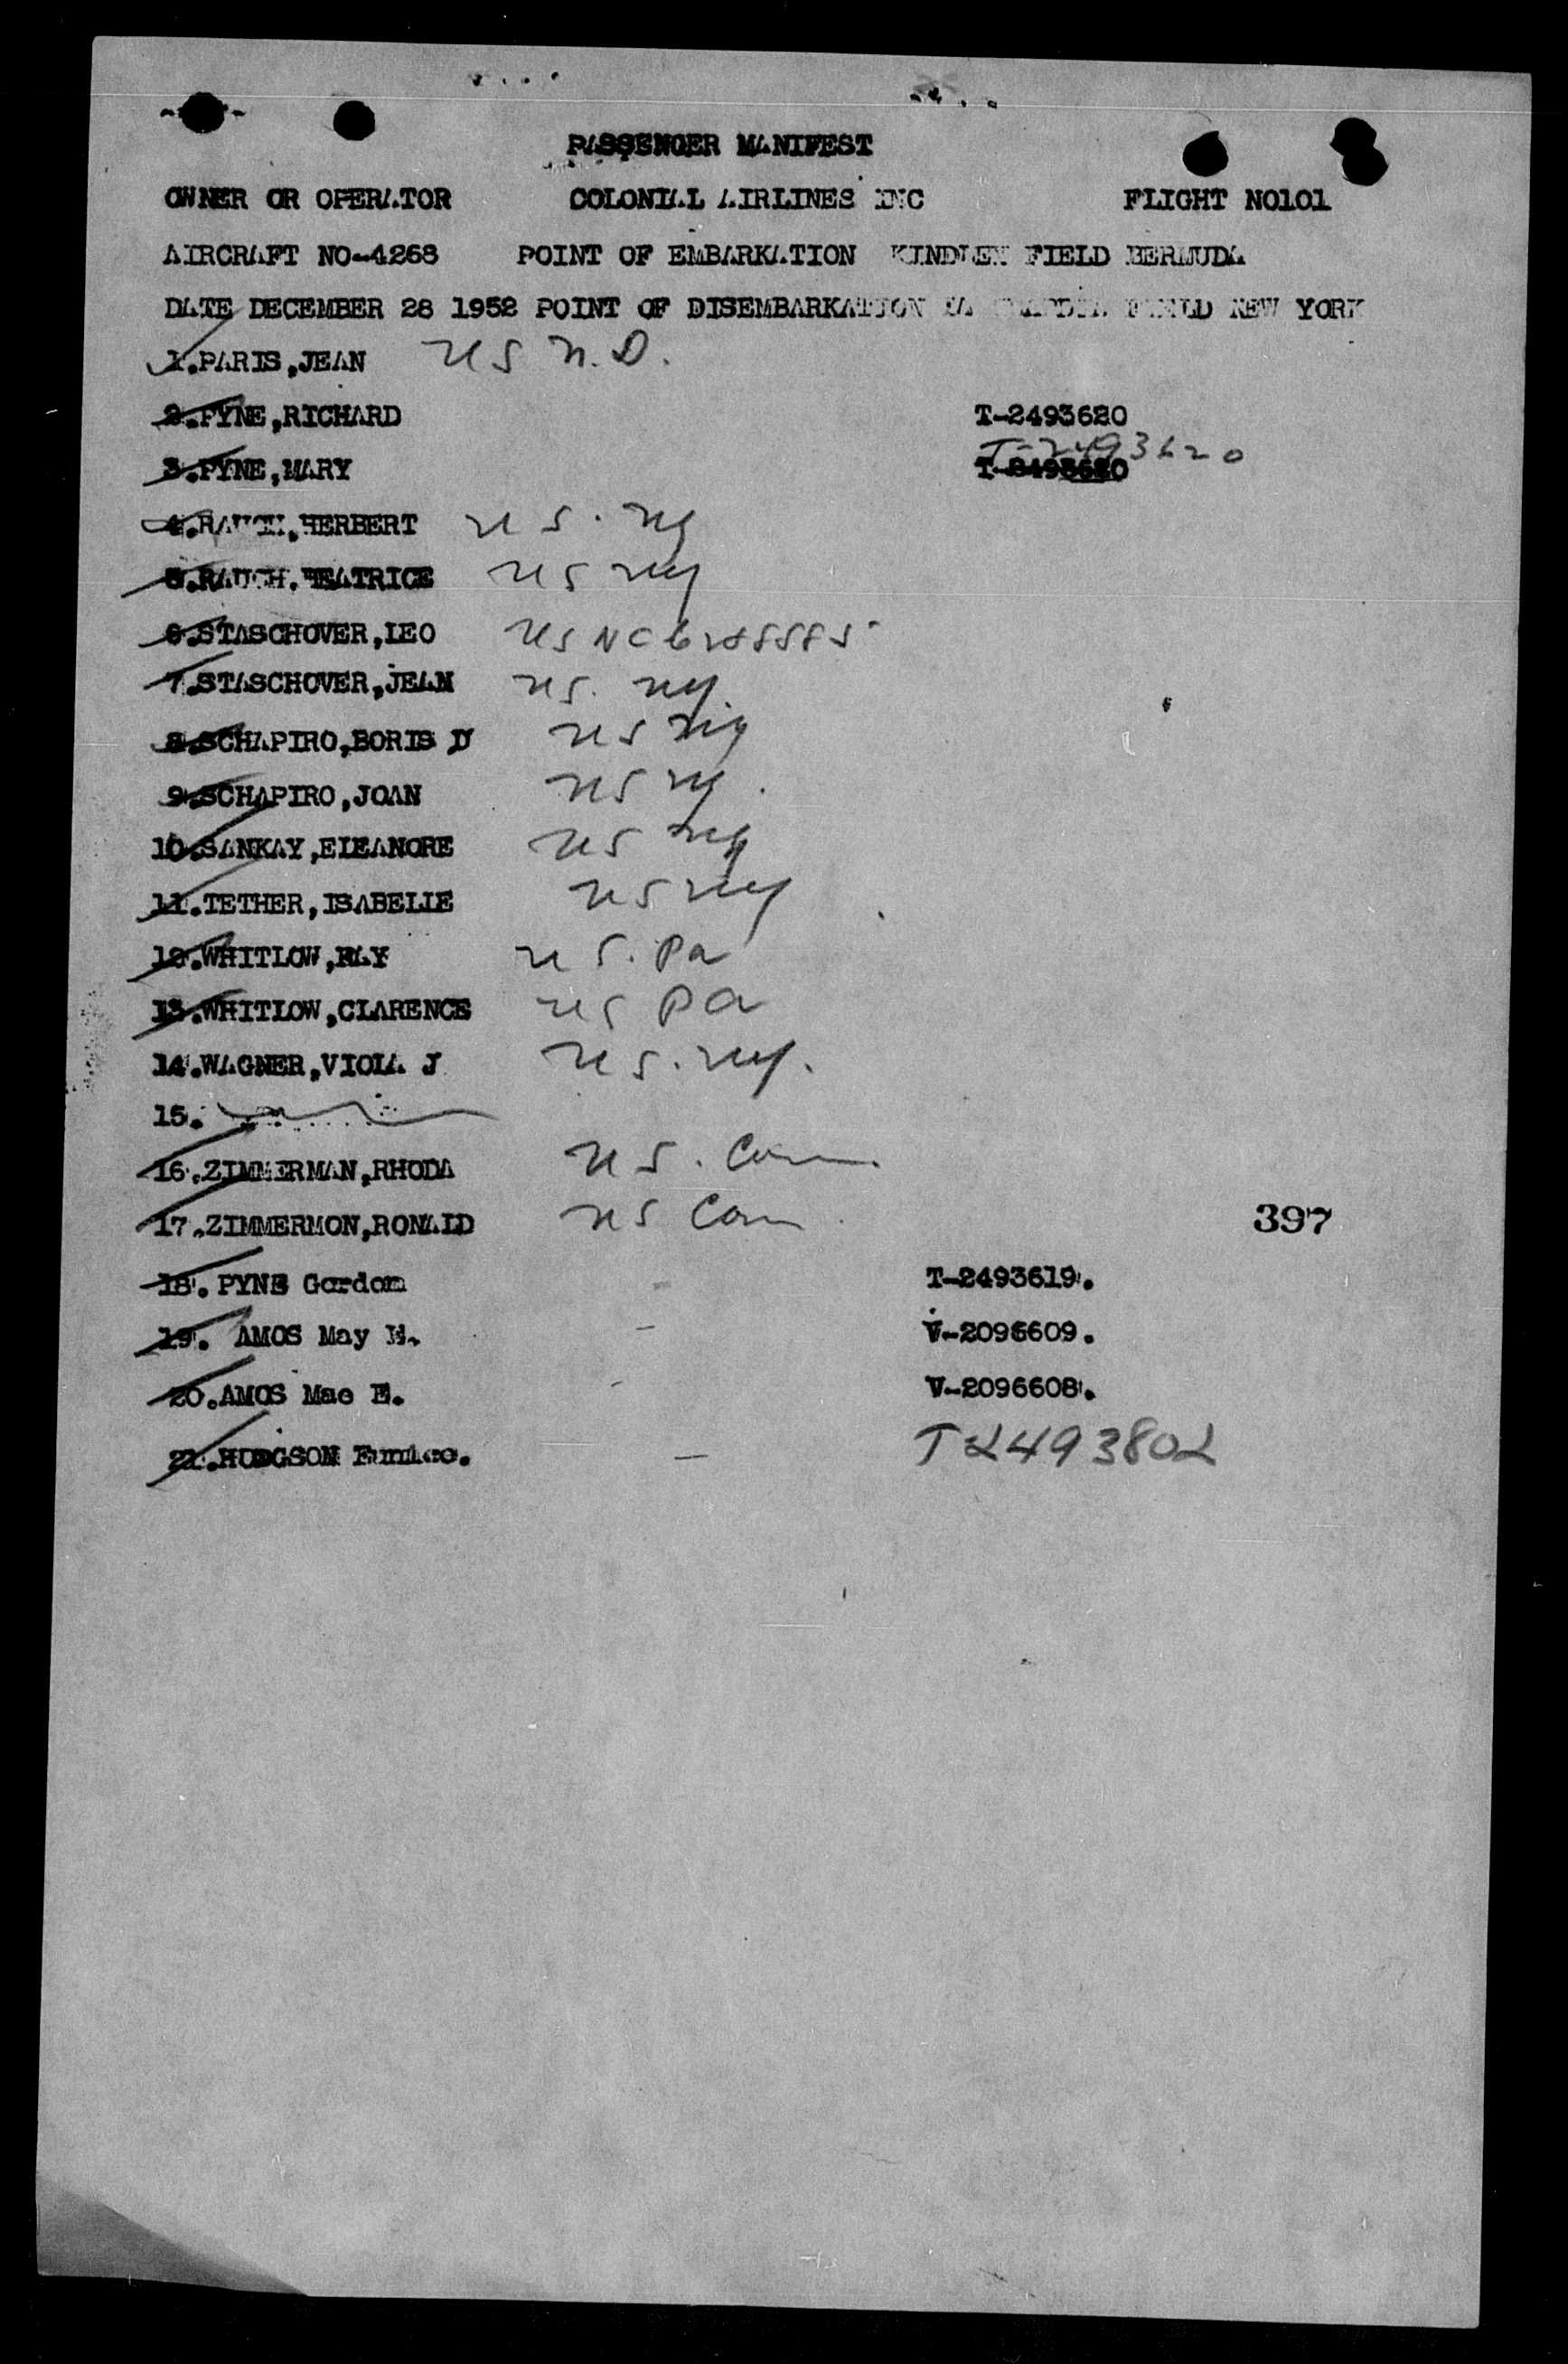 PASSENGER MANIFEST
OWNER OR OPERATOR COLONIAL AIRLINES INC FLIGHT NO101
AIRCRAFT NO-4268 POINT OF EMBARKATION KINDLEY FIELD BERMUDA
DATE DECEMBER 28 1952 POINT OF DISEMBARKATION FIELD NEW YORK
1.PARIS,JEAN US N.D.
2.PYNE,RICHARD T-2493620
T-2493620
3.PYNE,MARY
4. HERBERT US. Ny
5.RAUCH. BEATRICE US Ny
6.STASCHOVER,LEO US NC
7.STASCHOVER,JEAN US. Ny
8.SCHAPIRO,BORIS D US Ny
9.SCHAPIRO,JOAN US Ny.
10.SANKAY,ELEANORE US Ny
11.TETHER,ISABELLE US Ny
12.WHITLOW,RAY US. Pa
13.WHITLOW,CLARENCE US Pa
14.WAGNER,VIOLA J US. Ny.
15.
16.ZIMMERMAN,RHODA US. Conn.
17.ZIMMERMON,RONALD US Conn.
397
18. PYNE Gordon T-2493619.
19. AMOS May - V-2096609.
20.AMOS Mae E. - V-2096608.
21.HUDGSON Eunice. - T2493802